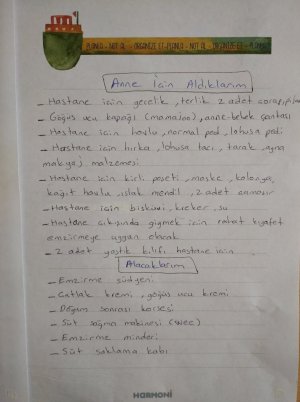 PLANLA - NOT AL - ORGANİZE ET - PLANLA - NOT AL - ORGANİZE ET - PLANLA
Anne İçin Aldıklarım
- Hastane için gecelik, terlik 2 adet çorap,
- Göğüs ucu kapağı (mamajoo), anne-bebek çantası
- Hastane için havlu, normal ped, lohusa pedi
- Hastane için hırka, lohusa tacı, tarak, ayna
makyaj malzemesi
- Hastane için kirli poşeti, maske, kolonya,
kağıt havlu, ıslak mendil, 2 adet
- Hastane için bisküvi, kraker, su
- Hastane çıkışında giymek için rahat kıyafet
emzirmeye uygun olacak
- 2 adet yastık kılıfı hastane için
Alacaklarım
- Emzirme sütyeni
- Çatlak kremi, göğüs ucu kremi
- Doğum sonrası korsesi
- Süt sağma makinesi (wee)
- Emzirme minderi
- Süt saklama kabı
HARMONİ